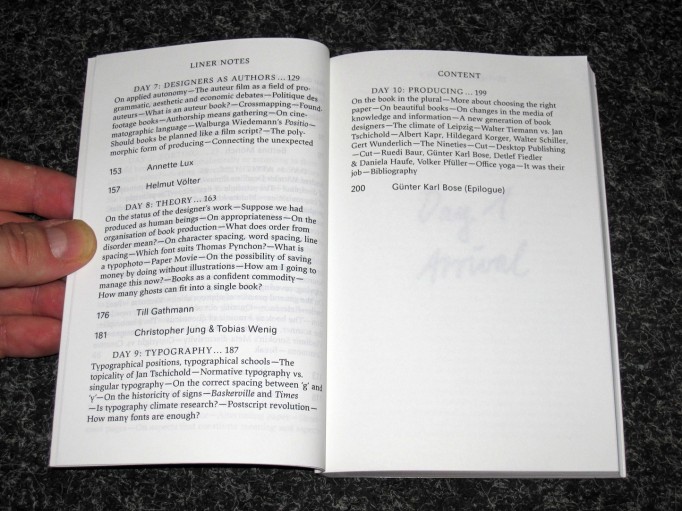 LINER NOTES
DAY 7: DESIGNERS AS AUTHORS ... 129
On applied autonomy—The auteur film as a field of pro-
grammatic, aesthetic and economic debates—Politique des
auteurs—What is an auteur book?—Crossmapping—Found
footage books—Authorship means gathering—On cine-
matographic language—Walburga Wiedemann's Positio—
Should books be planned like a film script?—The poly-
morphic form of producing—Connecting the unexpected
153 Annette Lux
157 Helmut Völter
DAY 8: THEORY ... 163
On the status of the designer's work—Suppose we had
produced as human beings—On appropriateness—On the
organisation of book production—What does order from
disorder mean?—On character spacing, word spacing, line
spacing—Which font suits Thomas Pynchon?—What is
a typophoto—Paper Movie—On the possibility of saving
money by doing without illustrations—How am I going to
manage this now?—Books as a confident commodity—
How many ghosts can fit into a single book?
176 Till Gathmann
181 Christopher Jung & Tobias Wenig
DAY 9: TYPOGRAPHY ... 187
Typographical positions, typographical schools—The
topicality of Jan Tschichold—Normative typography vs.
singular typography—On the correct spacing between 'g' and
'y'—On the historicity of signs—Baskerville and Times
—Is typography climate research?—Postscript revolution—
How many fonts are enough?
CONTENT
DAY 10: PRODUCING ... 199
On the book in the plural—More about choosing the right
paper—On beautiful books—On changes in the media of
knowledge and information—A new generation of book
designers—The climate of Leipzig—Walter Tiemann vs. Jan
Tschichold—Albert Kapr, Hildegard Korger, Walter Schiller,
Gert Wunderlich—The Nineties—Cut—Desktop Publishing
—Cut—Ruedi Baur, Günter Karl Bose, Detlef Fiedler
& Daniela Haufe, Volker Pfüller—Office yoga—It was their
job—Bibliography
200 Günter Karl Bose (Epilogue)
Day 1
Arrival